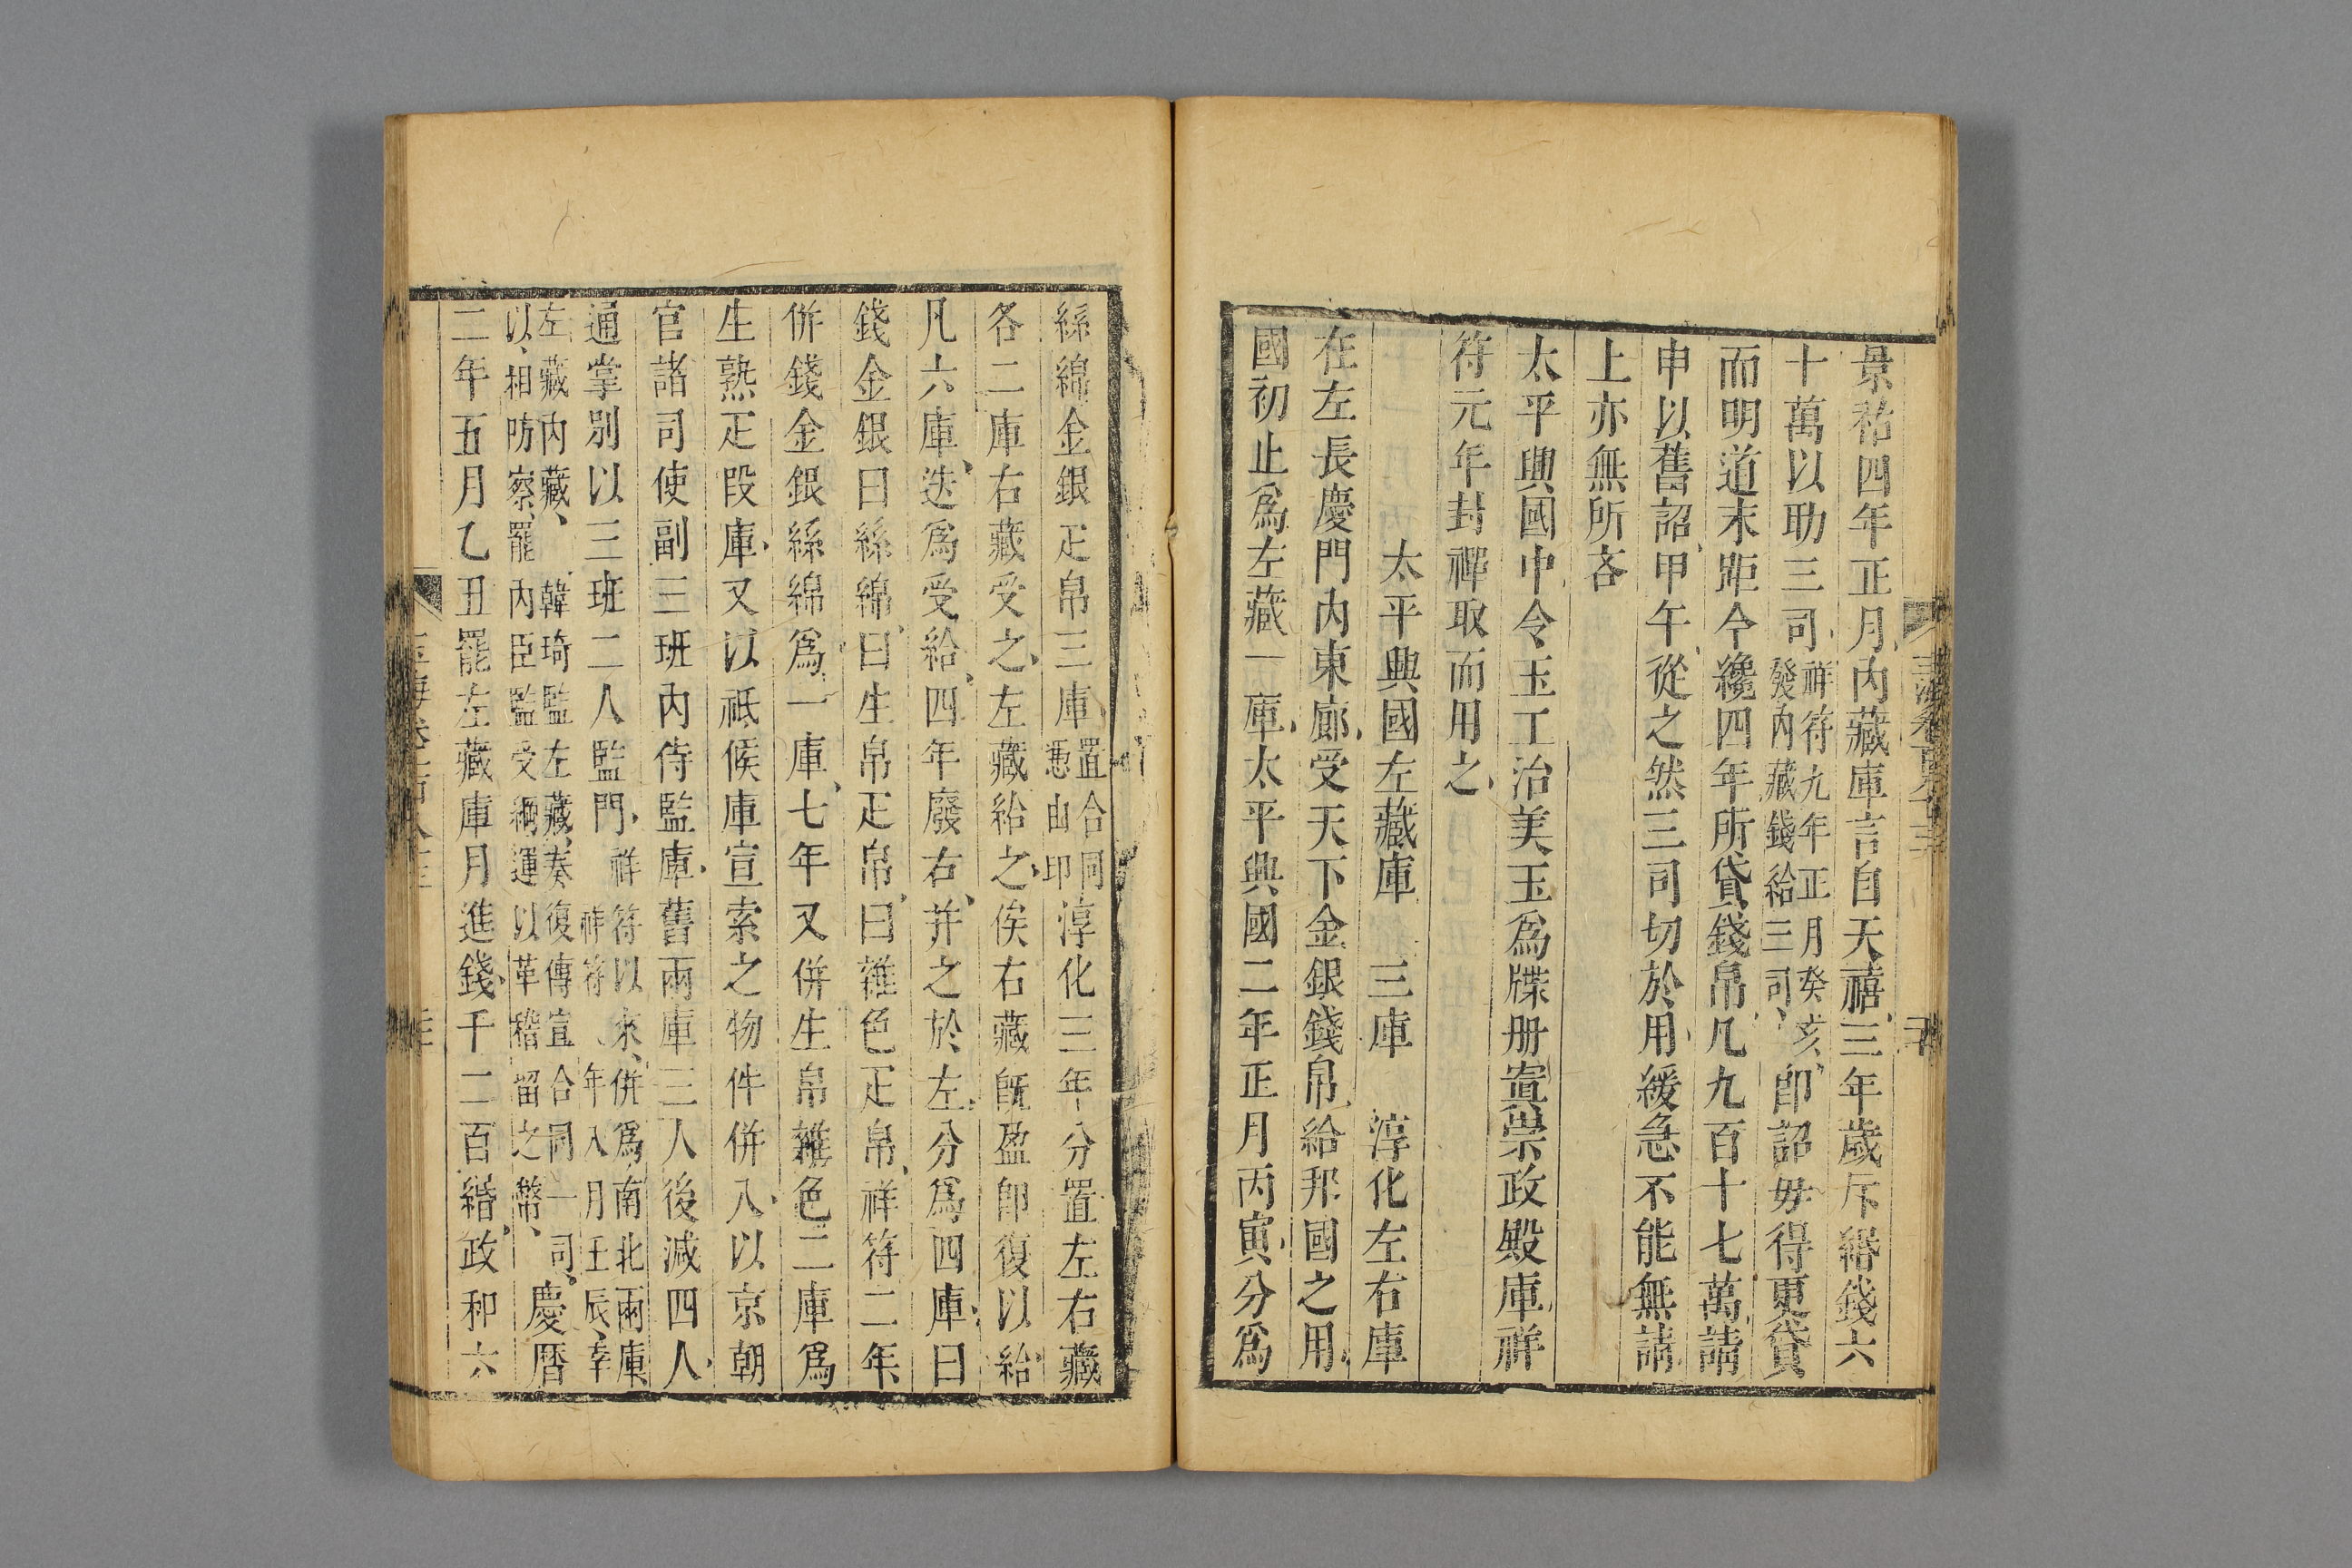 景祐四年正月內藏庫言自天禧三年歲斥緡錢六
十萬以助三司祥符九年正月癸亥發內藏錢給三司卽詔毋得更貸
而明道末距今纔四年所貸錢帛凡九百十七萬請
申以舊詔甲午從之然三司切於用緩急不能無請
上亦無所吝
太平興國中令玉工治美玉爲牒册寘崇政殿庫祥
符元年封禪取而用之
太平興國左藏庫 三庫 淳化左右庫
在左長慶門內東廊受天下金銀錢帛給邦國之用
國初止爲左藏一庫太平興國二年正月丙寅分爲
絲綿金銀疋帛三庫置合同憑由印淳化三年分置左右藏
各二庫右藏受之左藏給之俟右藏旣盈卽復以給
凡六庫迭爲受給四年廢右并之於左分爲四庫曰
錢金銀曰絲綿曰生帛疋帛曰雜色疋帛祥符二年
併錢金銀絲綿爲一庫七年又併生帛雜色二庫爲
生熟疋段庫又以祗候庫宣索之物件併入以京朝
官諸司使副三班內侍監庫舊兩庫三人後減四人
通掌別以三班二人監門祥符以來併爲南北兩庫祥符八年八月壬辰幸
左藏內藏韓琦監左藏奏復傳宣合同一司以相防察罷內臣監受綱運以革稽留之幣慶曆
二年五月乙丑罷左藏庫月進錢千二百緡政和六